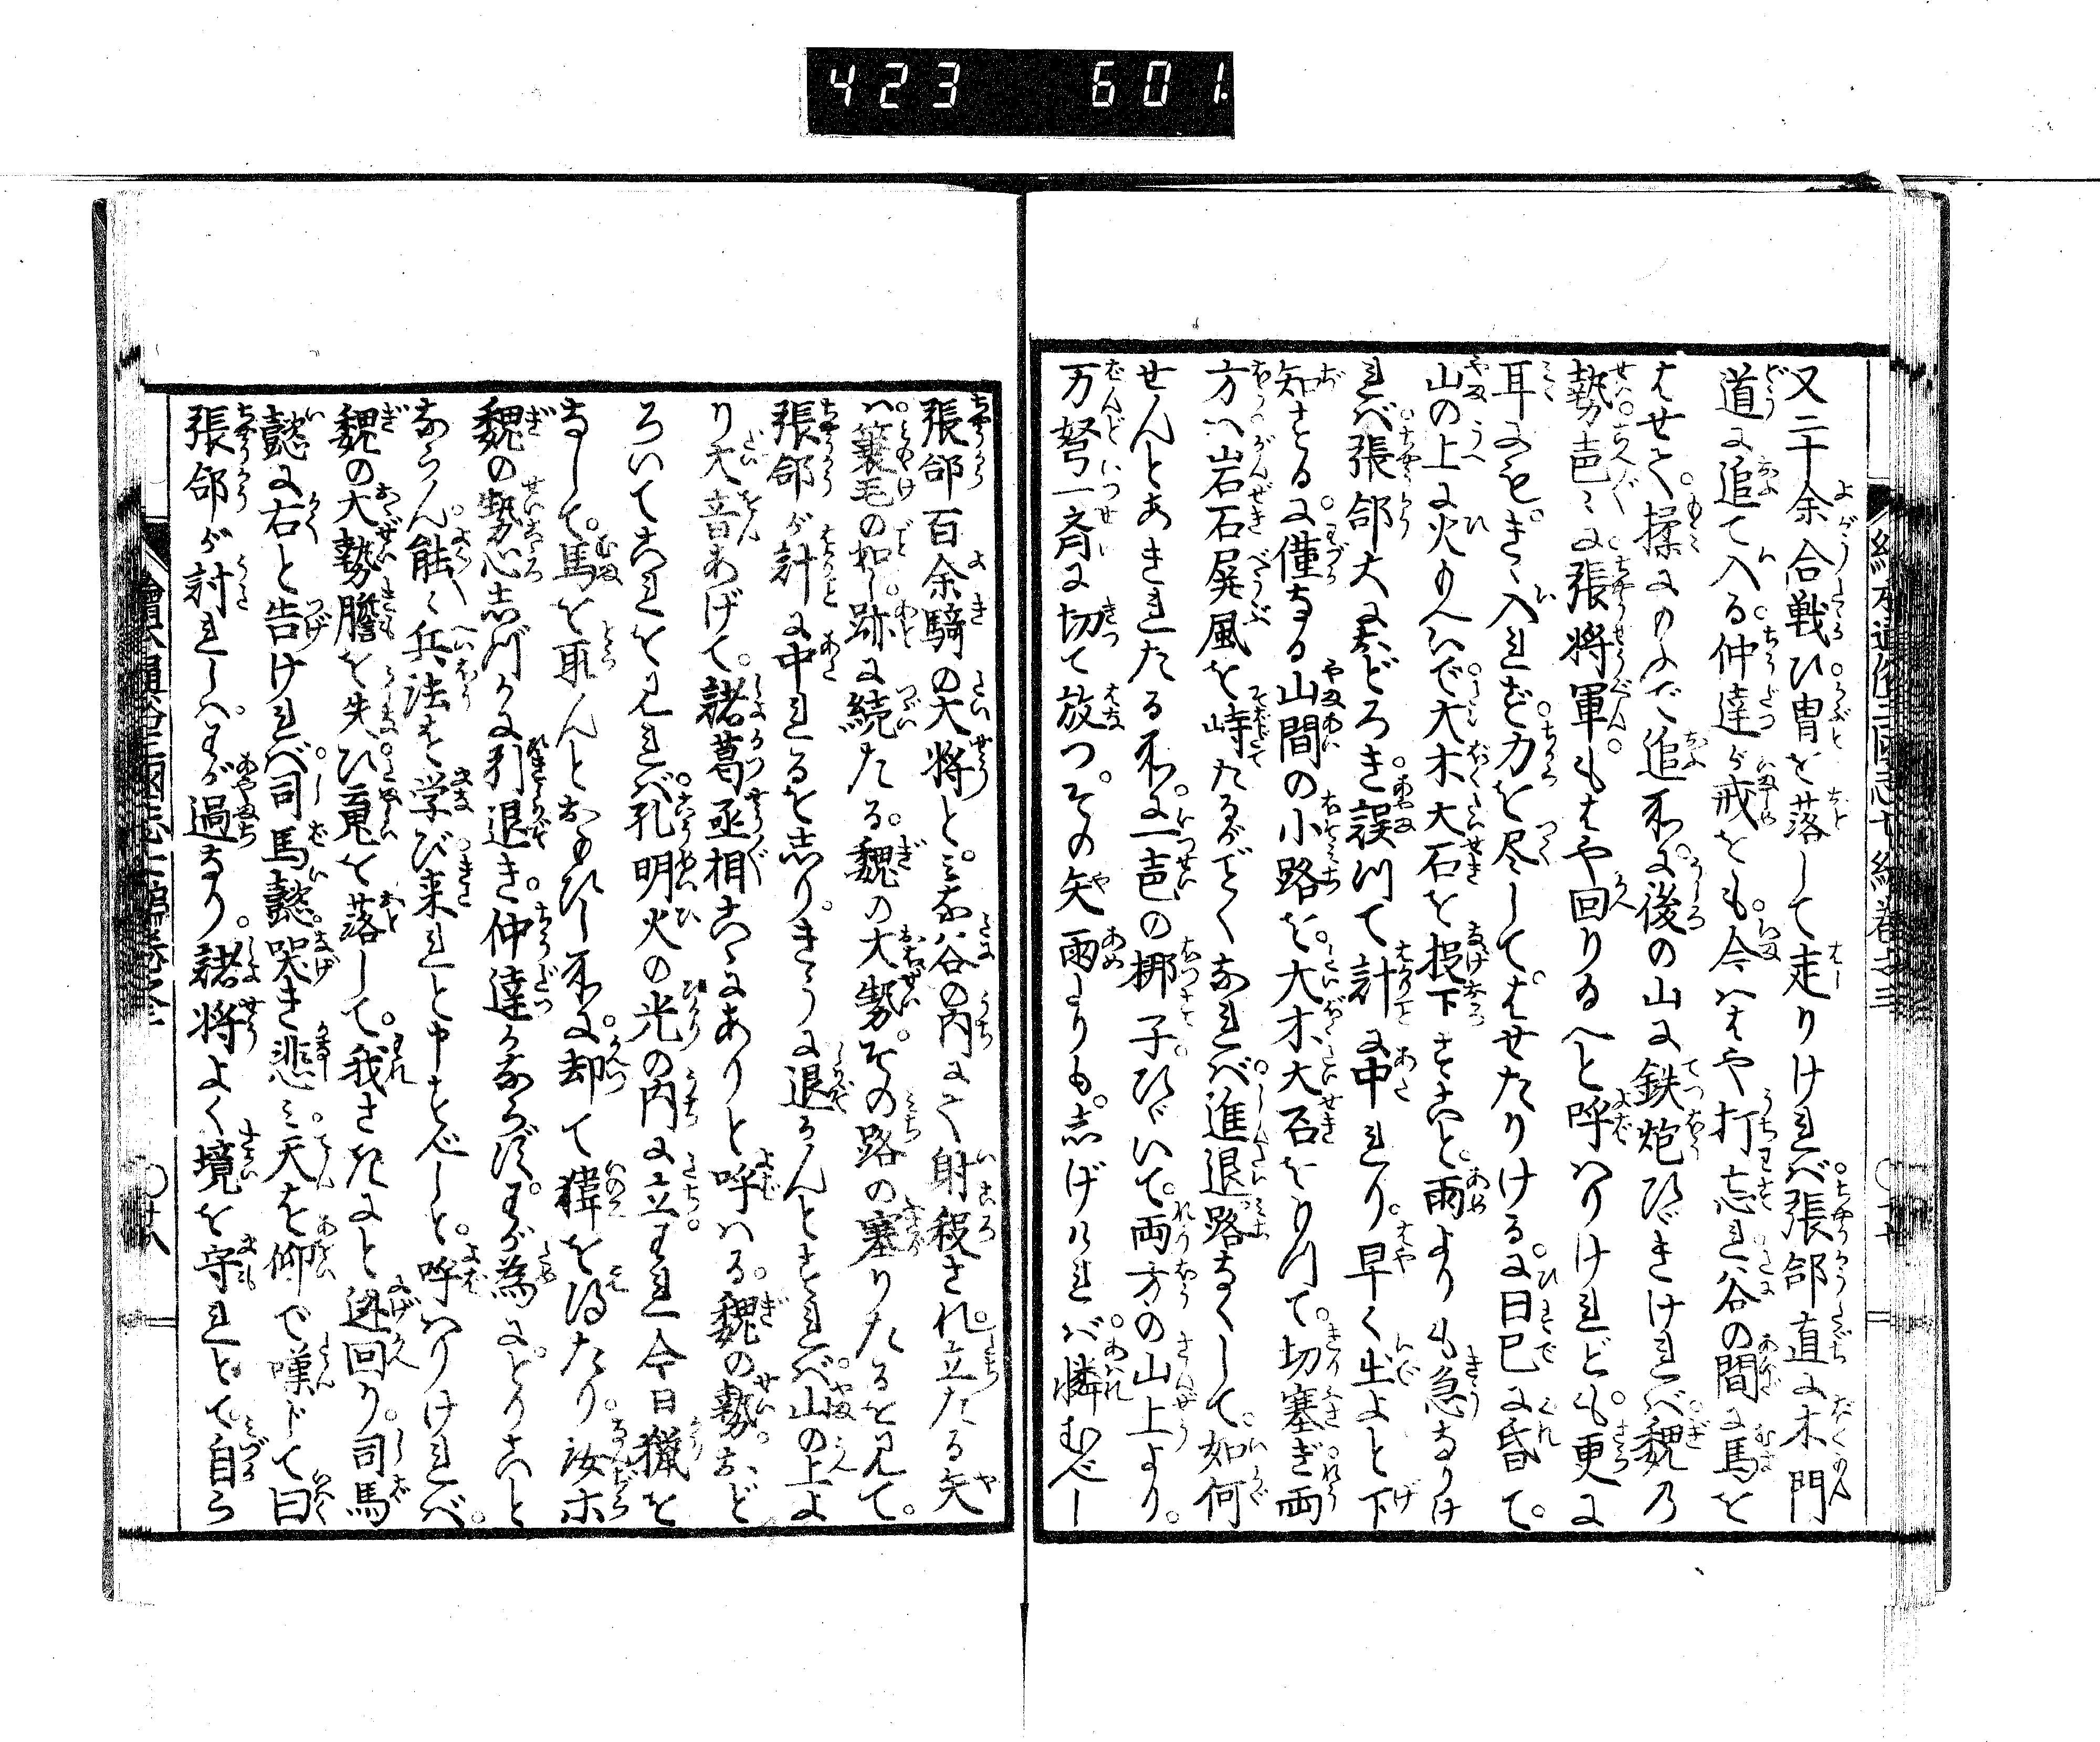 423 601
又二十余合戦ひ冑を落して走りければ張郃直に木門
道に追て入る。仲達が戒をも。今はや打忘れ谷の間に馬を
はせて。揉にのふで追所に。後の山に鉄炮ひゞきければ魏の
勢声〻に張将軍。もはや回り給へと呼はりけれども。更に
耳にも。きゝ入れず。力を尽して。はせたりける。に日已に昏て。
山の上に火もへいで大木大石を投下すこと。雨よりも急なりけ
れば張郃大におどろき。誤つて計に中れり。早く出よと下
知する。に僅なる山間の小路を。大木大石をもつて。切塞ぎ両
方は岩石屏風を峙たるがごとくなれば進退路なくして。如何
せんとあきれたる所に一声の梆子。ひゞいて。両方の山上より。
万弩一斉に切て放つ。その矢雨よりも。しげければ。憐むべし
張郃百余騎の大将と。みな谷の内にて射殺され。立たる矢
は。簑毛の如し。跡に続たる。魏の大勢。その路の塞りたるを見て。
張郃が計に中れるを志り。きうに退かんとすれば。山の上よ
り大音あげて。諸葛丞相こゝにありと呼はる。魏の勢おど
ろいてこれを見れば。孔明火の光の内に立。われ今日猟を
なして。馬を取んとおもひし所に。却て獐を得たり。汝ホ
魏の勢心志づかに引退き。仲達かならず。わが為にとりこと
ならん。能〻兵法を学び来れと申すべしと。呼はりければ。
魏の大勢膽を失ひ魂を落して。我さきにと逃回り。司馬
懿に右と告ければ。司馬懿。哭き悲み。天を仰で嘆じて曰
張郃が討れしは。わが過なり。諸将よく境を守れとて。自ら